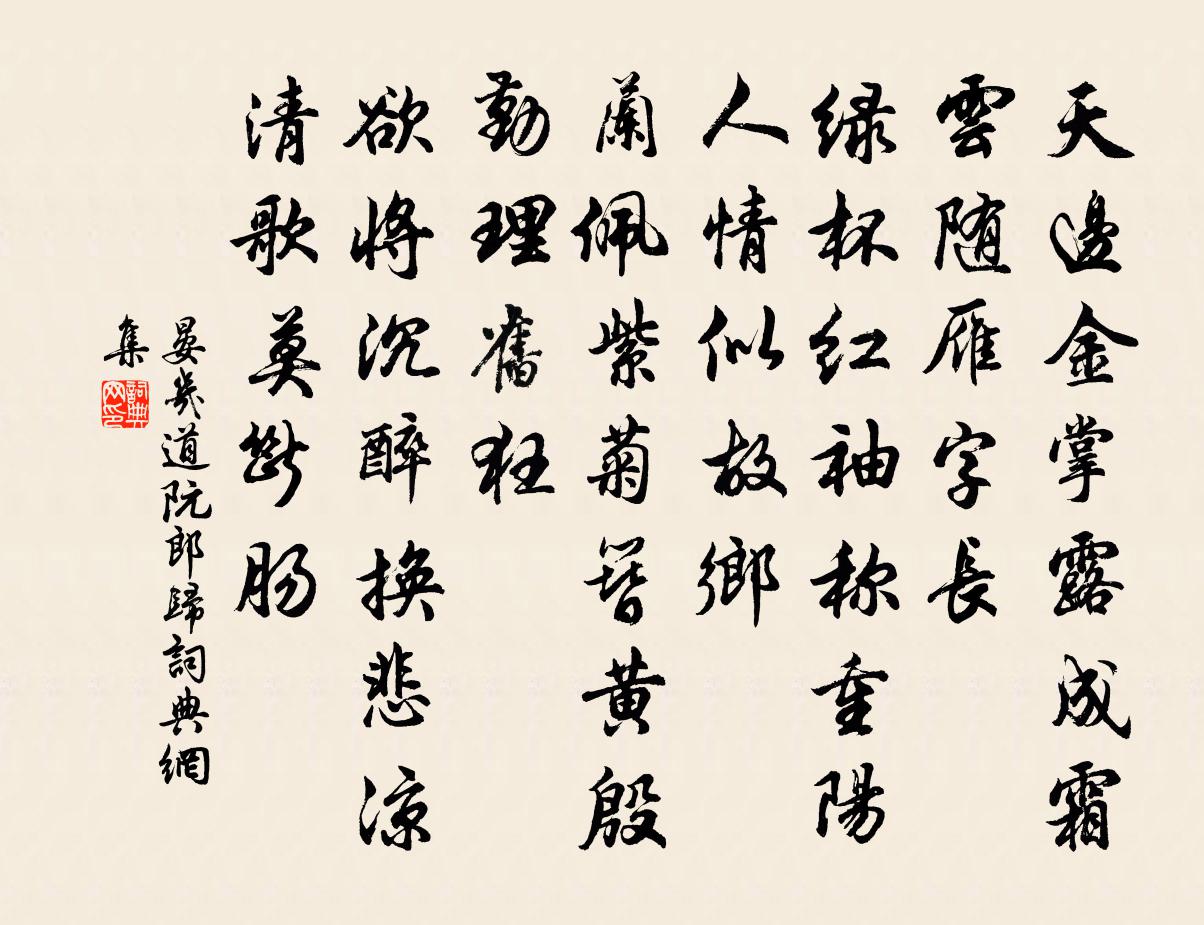 天邊金掌露成霜
雲随雁字長
緑杯紅袖称重陽
人情似故鄉
蘭佩紫菊簪黄殷
勤理舊狂
欲將沉醉換悲涼
清歌莫斷腸
晏幾道阮郎歸詞典網
集
詞典
网印